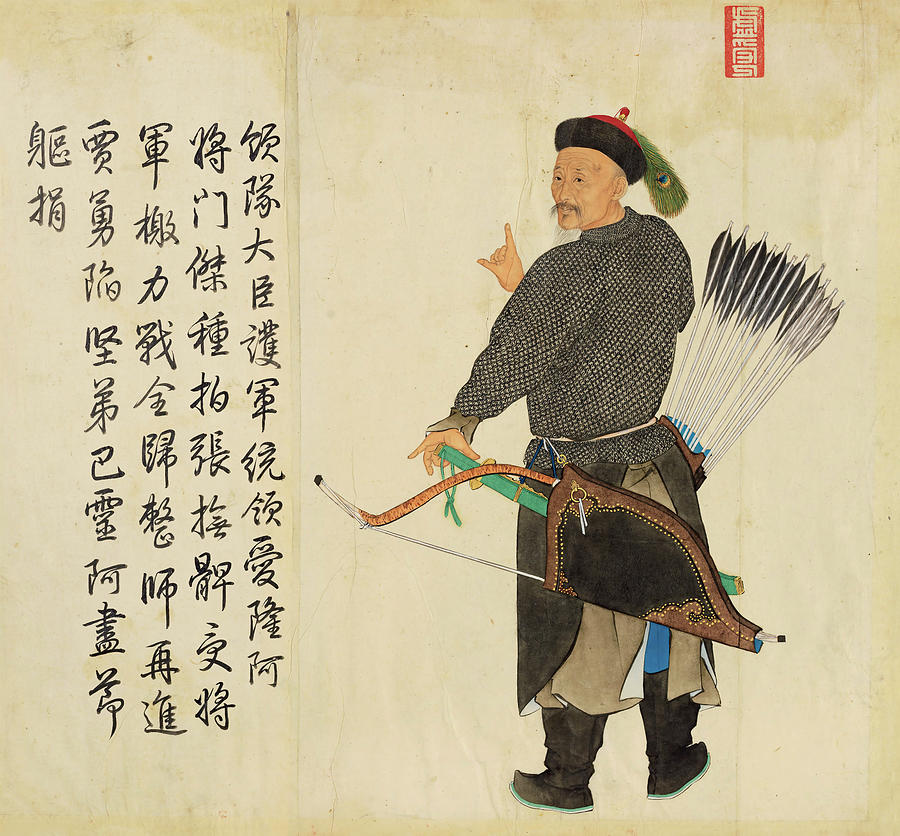 領隊大臣護軍統領愛隆阿
將門傑種拍張撫髀受將
軍檄力戰全歸整師再進
賈勇陷堅弟巴靈阿盡節
軀捐